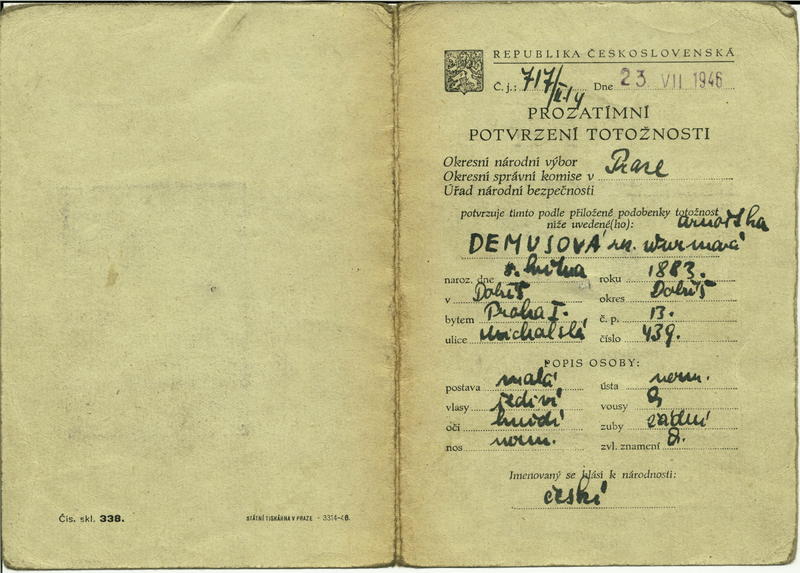 REPUBLIKA ČESKOSLOVENSKÁ
Č. j.: 717/ Dne 23 VII 1946
PROZATÍMNÍ
POTVRZENÍ TOTOŽNOSTI
Okresní národní výbor
Okresní správní komise v Praze
Úřad národní bezpečnosti
potvrzuje tímto podle přiložené podobenky totožnost
níže uvedené(ho):
DEMUSOVÁ
naroz. dne 8. května roku 1883.
v Dobříš okres Dobříš
bytem Praha I. č. p. 13.
ulice Michalská číslo 439.
POPIS OSOBY:
postava malá ústa norm.
vlasy šedivé vousy
oči hnědé zuby žádné
nos norm. zvl. znamení
Jmenovaný se hlásí k národnosti:
české
Čís. skl. 338.
STÁTNÍ TISKÁRNA V PRAZE - 3314-46.